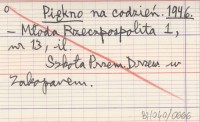 Piękno na codzień. 1946.
- Młoda Rzeczpospolita 1,
nr 13, il.
Szkoła Przem. Drzew. w
Zakopanem.
81/040/0666